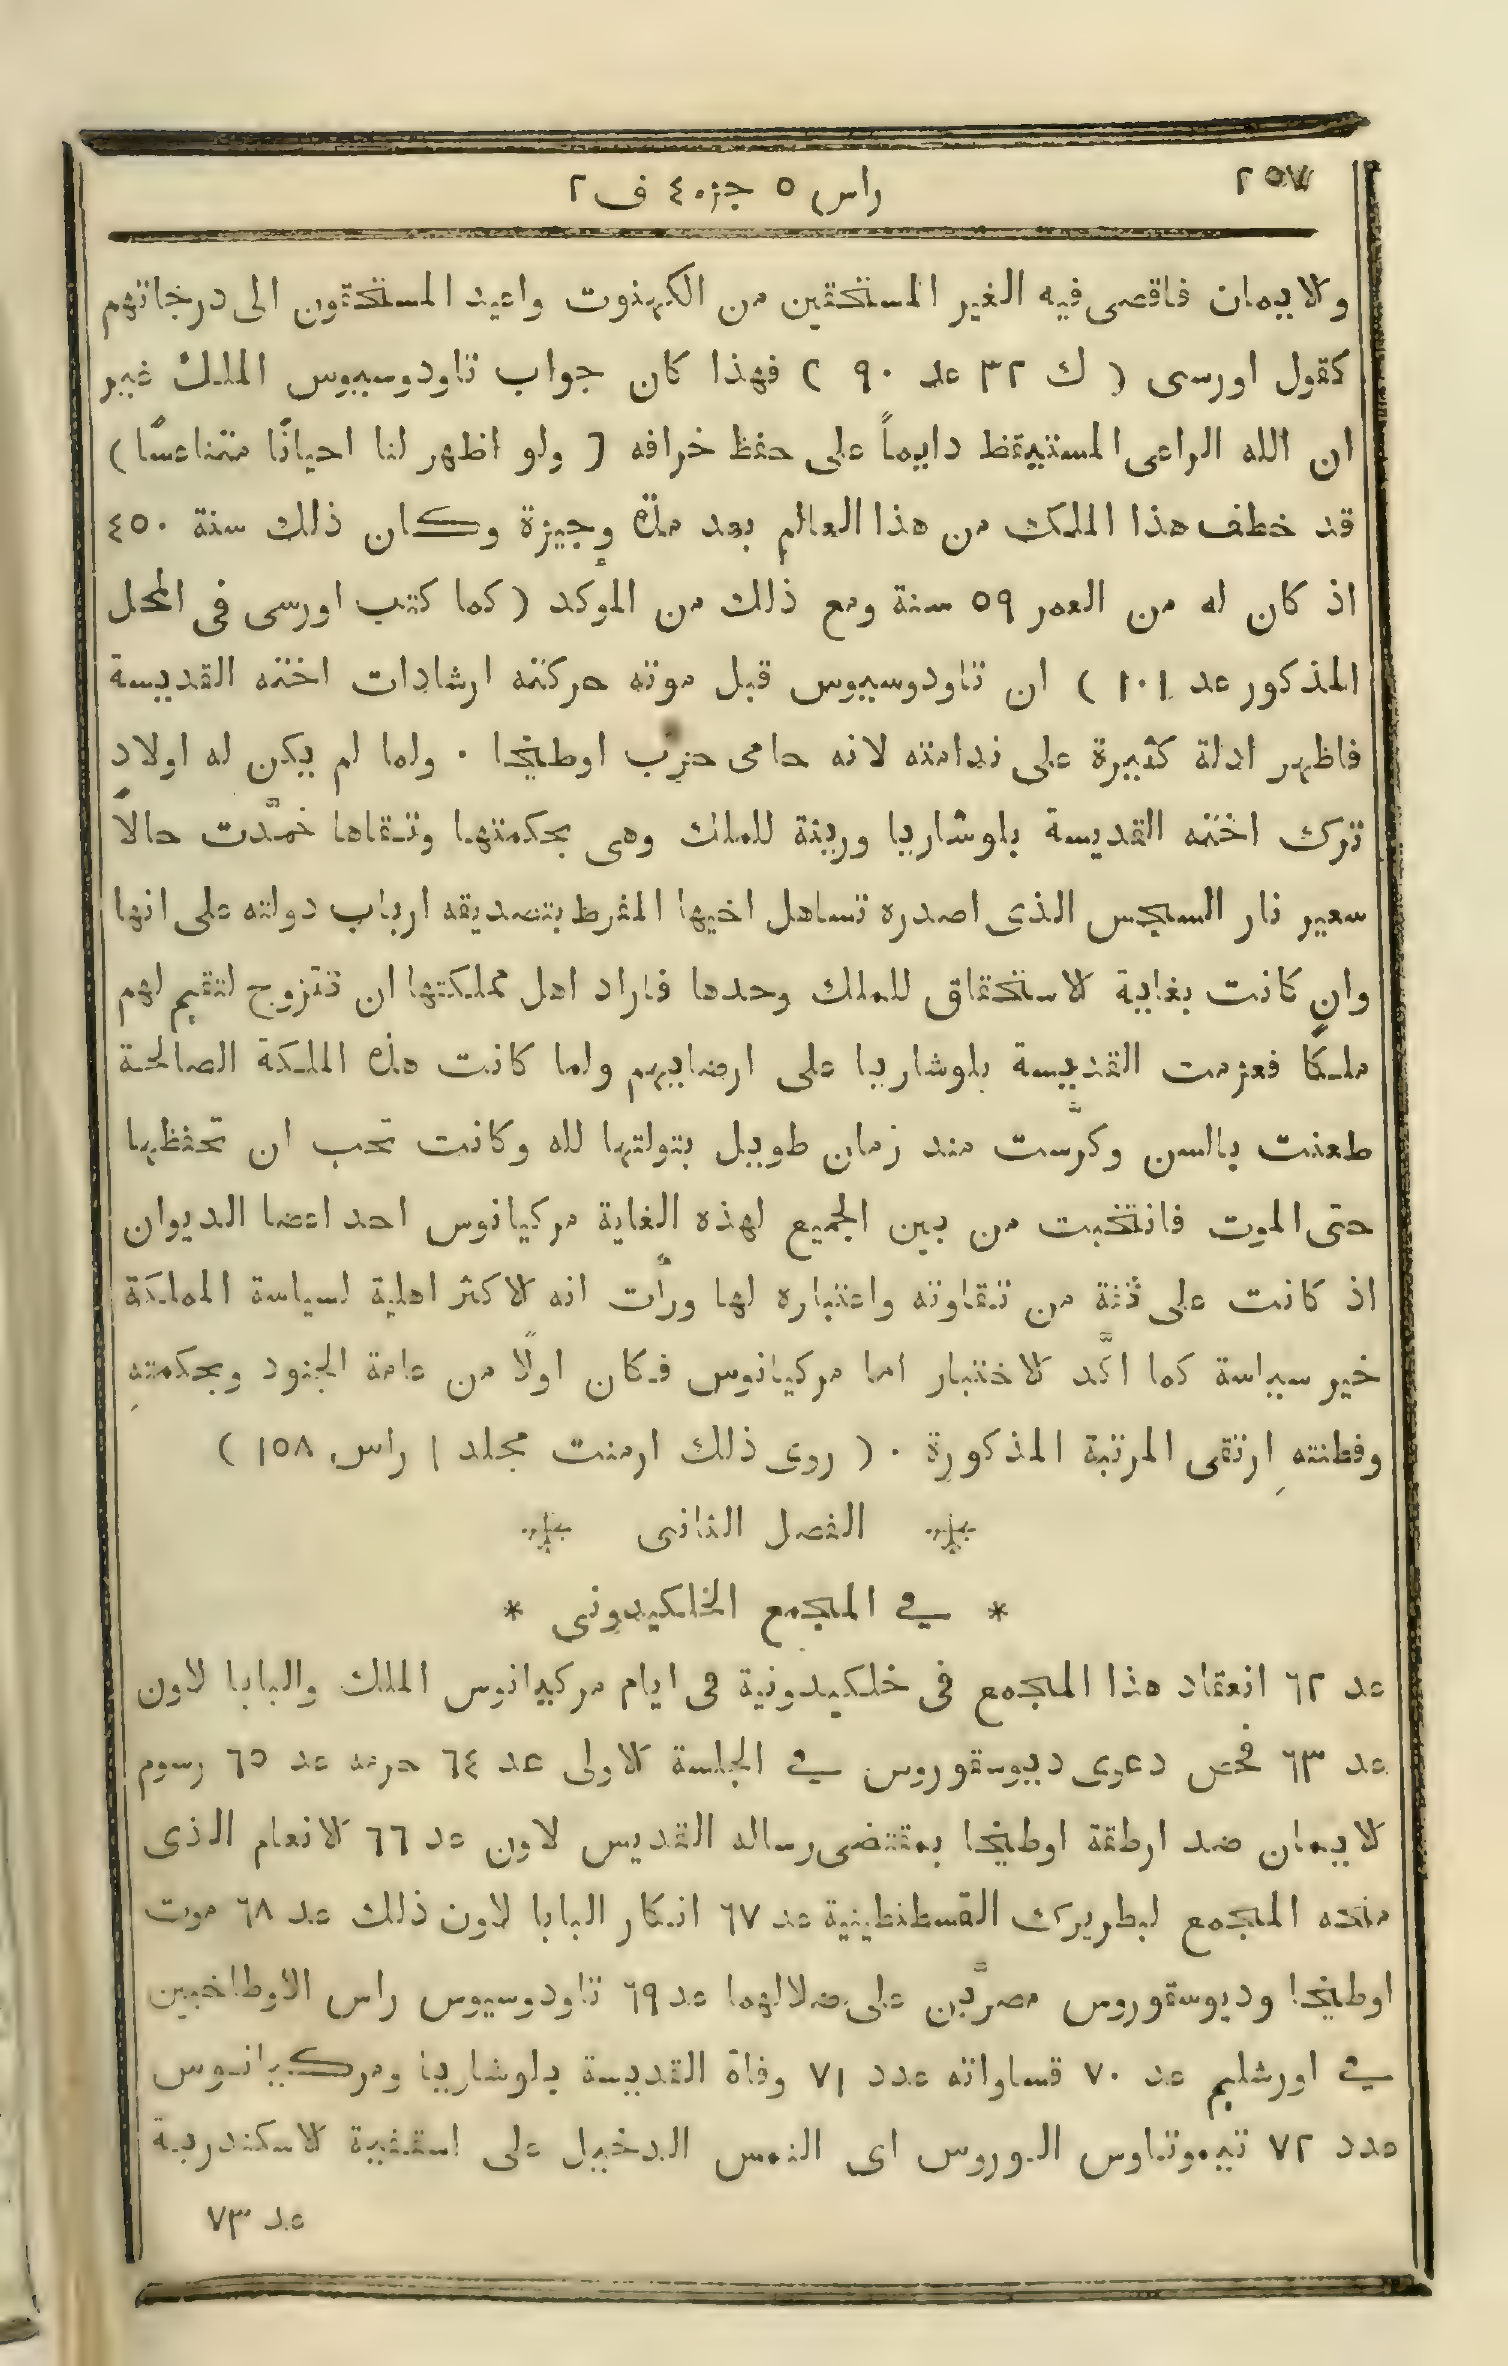 ٢٥٧
راس ٥ جزء ٤ ف ٢
والايمان فاقصى فيه الغير المستحقين من الكهنوت واعيد المستحقون الى درجاتهم
كقول اورسى ( ك ٣٢ عد ٩٠ ) فهذا كان جواب تاودوسيوس الملك غير
ان الله الراعى المستيقظ دايماً على حفظ خرافه ( ولو اظهر لنا احيانًا متناعسًا )
قد خطف هذا الملك من هذا العالم بعد مدة وجيزة وكان ذلك سنة ٤٥٠
اذ كان له من العمر ٥٩ سنة ومع ذلك من الموكد ( كما كتب اورسى فى المحل
المذكور عد ١٠١ ) ان تاودوسيوس قبل موته حركته ارشادات اخته القديسة
فاظهر ادلة كثيرة على ندامته لانه حامى حزب اوطيخا · ولما لم يكن له اولاد
ترك اخته القديسة بلوشاريا وريثة للملك وهى بحكمتها وتقاها خمَّدت حالاً
سعير نار السجس الذى اصدره تساهل اخيها المفرط بتصديقه ارباب دولته على انها
وان كانت بغاية الاستحقاق للملك وحدها فاراد اهل مملكتها ان تتزوج لتقيم لهم
ملكًا فعزمت القديسة بلوشاريا على ارضايهم ولما كانت هذه الملكة الصالحة
طعنت بالسن وكرَّست منذ زمان طويل بتولتها لله وكانت تحب ان تحفظها
حتى الموت فانتخبت من بين الجميع لهذه الغاية مركيانوس احد اعضا الديوان
اذ كانت على ثقة من تقاوته واعتباره لها ورأت انه الاكثر اهلية لسياسة المملكة
خير سياسة كما اكَّد الاختبار اما مركيانوس فكان اولًا من عامة الجنود وبحكمتهِ
وفطنتهِ ارتقى المرتبة المذكورة · ( روى ذلك ارمنت مجلد ١ راس ١٥٨ )
الفصل الثانى
* في المجمع الخلكيدونى *
عد ٦٢ انعقاد هذا المجمع فى خلكيدونية فى ايام مركيانوس الملك والبابا لاون
عد ٦٣ فحص دعوى ديوسقوروس في الجلسة الاولى عد ٦٤ حرمه عد ٦٥ رسوم
الايمان ضد ارطقة اوطيخا بمقتضى رساله القديس لاون عد ٦٦ الانعام الذى
منحه المجمع لبطريرك القسطنطينية عد ٦٧ انكار البابا لاون ذلك عد ٦٨ موت
اوطيخا وديوسقوروس مصرَّين على ضلالهما عد ٦٩ تاودوسيوس راس الاوطاخيين
في اورشليم عد ٧٠ قساواته عدد ٧١ وفاة القديسة بلوشاريا ومركيانوس
عدد ٧٢ تيموتاوس الوروس اى النمس الدخيل على اسقفية الاسكندرية
عد ٧٣